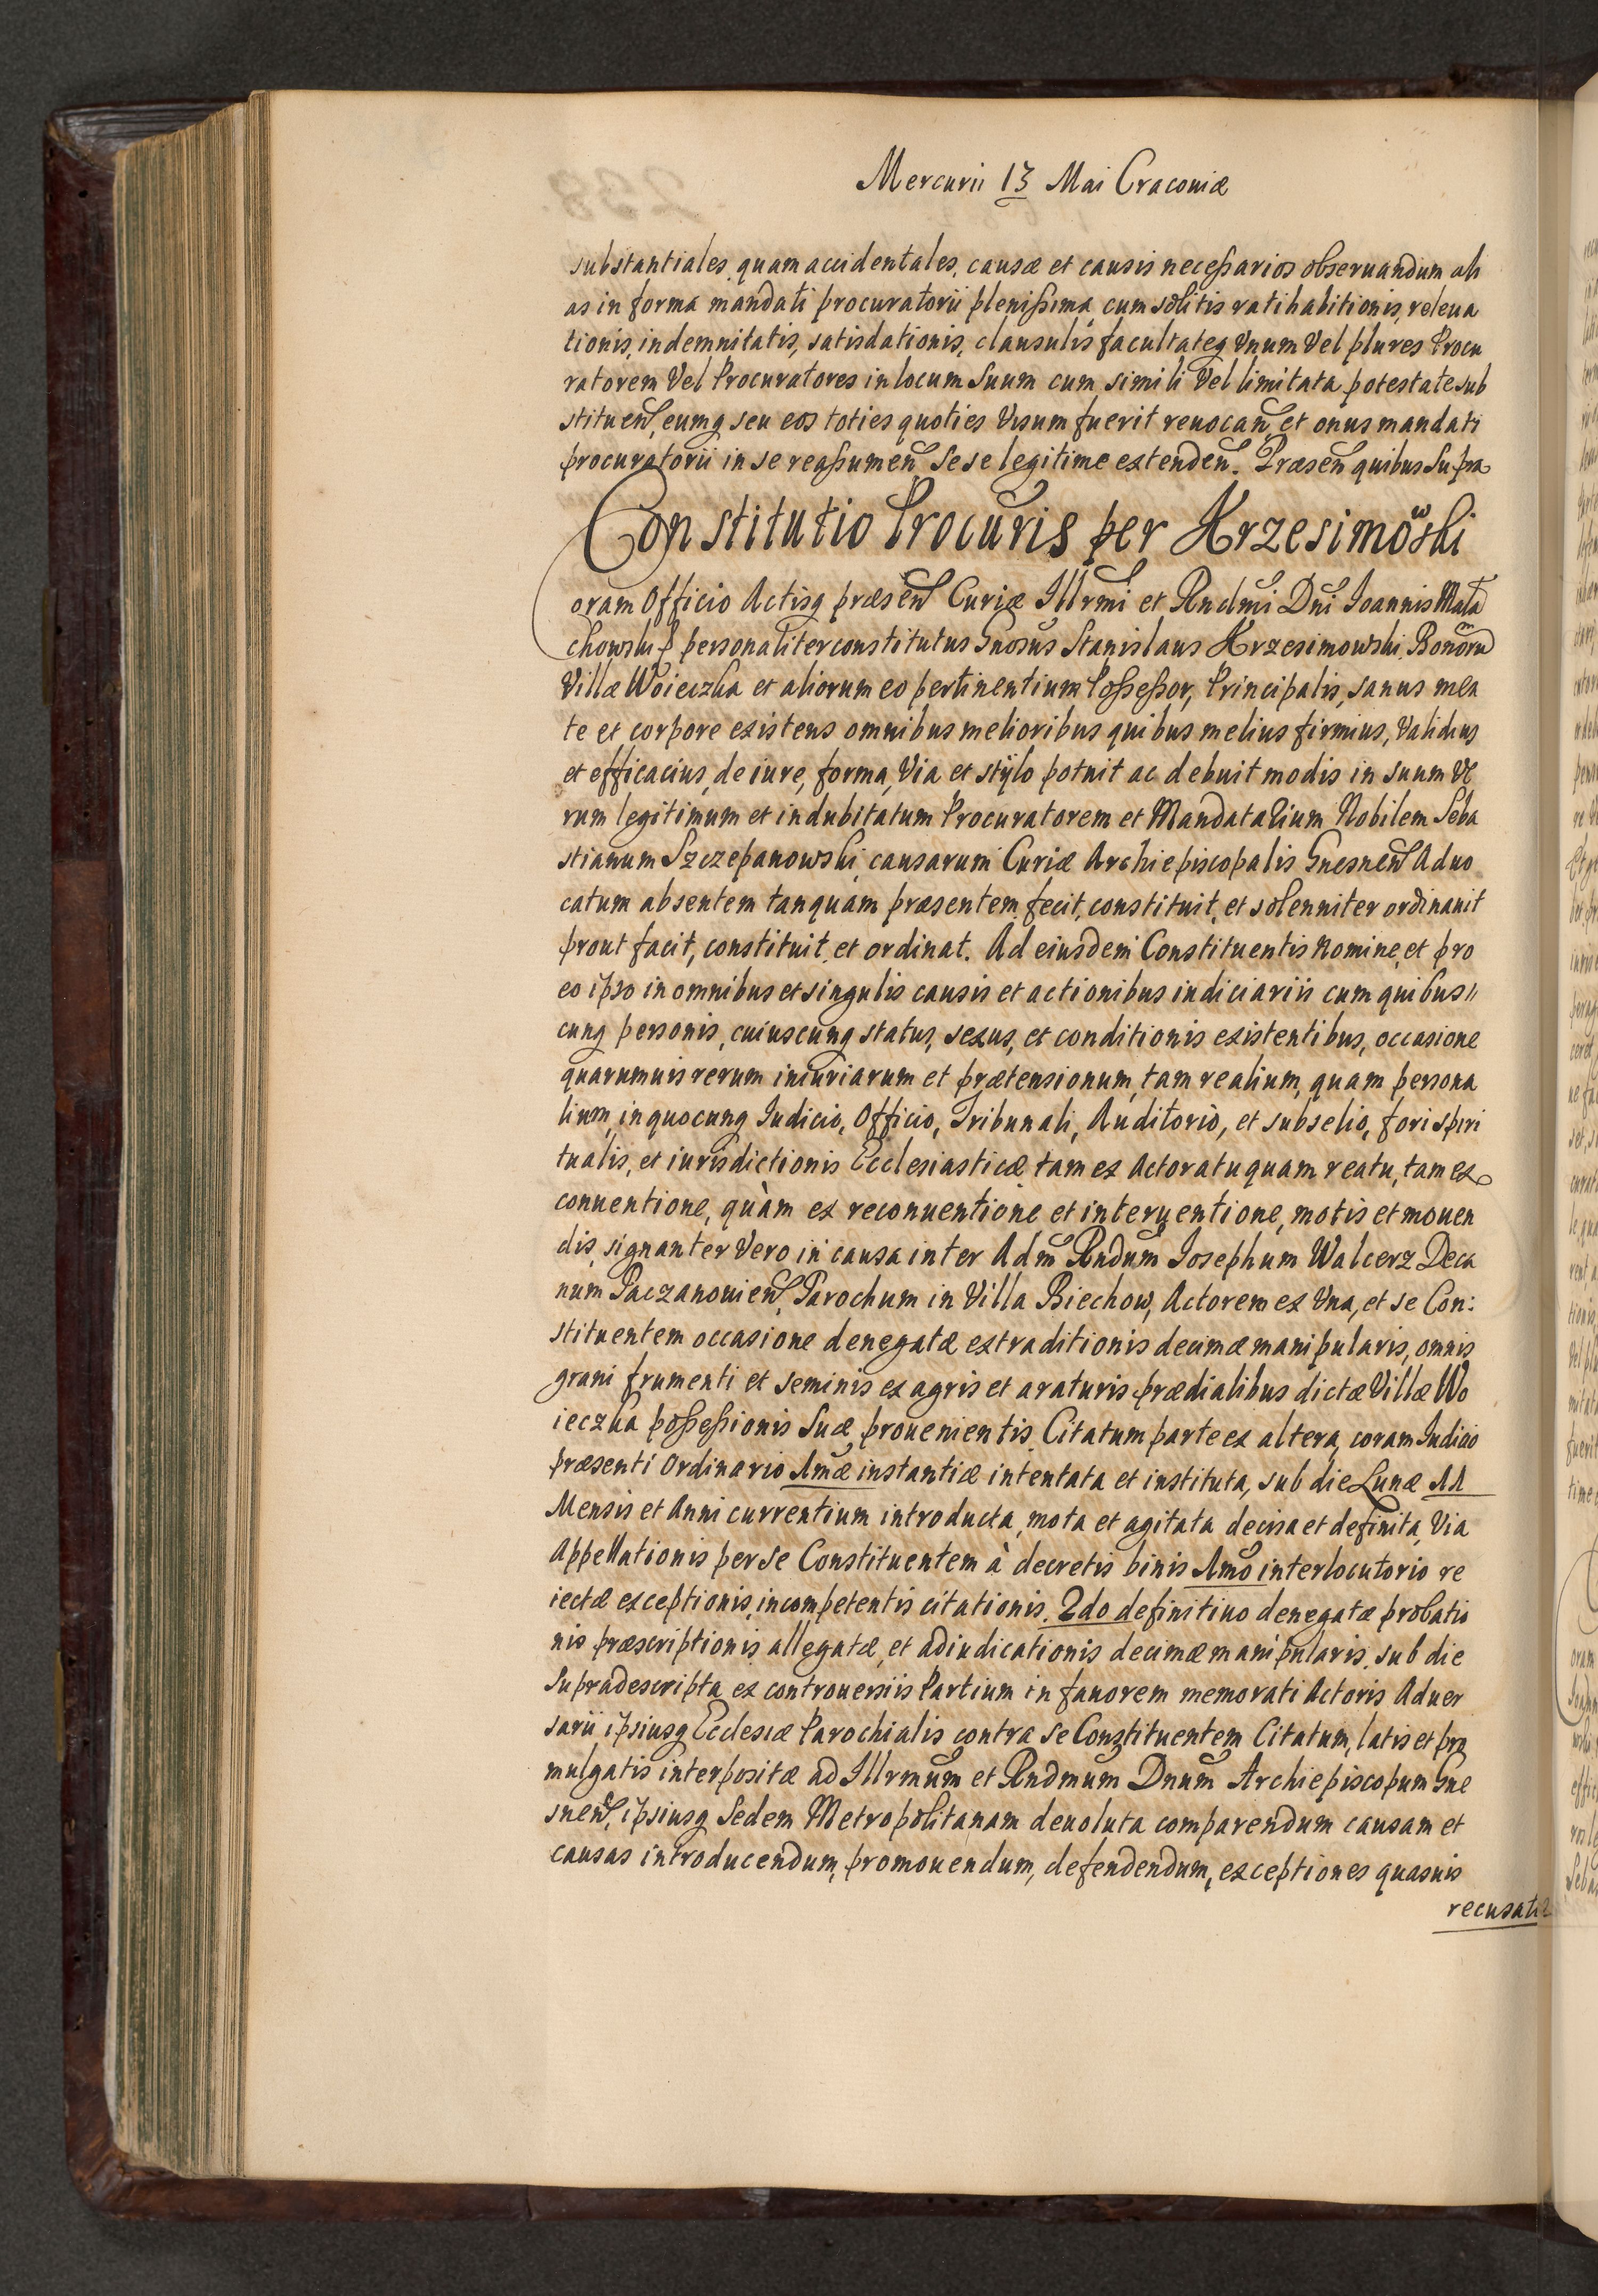 Mercurii 13 Mai Cracoviæ
substantiales, quam accidentales, causæ et causis neceßarios obseruandum ali
as in forma mandati procuratorii plenißima, cum solitis ratihabitionis, releua
tionis, indemnitatis, satisdationis, clausulis facultateq Vnum Vel plures Procu
ratorem Vel Procuratores in locum Suum cum simili Vel limitata potestate sub
stituen, eumq seu eos toties quoties Visum fuerit reuocan, et onus mandati
procuratorii in se reaßumen Sese legitime extenden. Præsen quibus Supra
Constitutio Procuris per Krzesimowski
Coram Officio Actisq præsen Curiæ Illrmi et Rndmi Dni Joannis Mała
chowski personaliter constitutus Gnosus Stanislaus Krzesimowski, Bonorum
Villæ Woieczka et aliorum eo pertinentium Poßeßor, Principalis, sanus men
te et corpore existens omnibus melioribus quibus melius firmius, Validius
et efficacius, de iure, forma, Via et stÿlo potuit ac debuit modis in suum Ve
rum legitimum et indubitatum Procuratorem et Mandatarium Nobilem Seba
stianum Szczepanowski, causarum Curiæ Archiepiscopalis Gnesnen Aduo
catum absentem tanquam præsentem fecit, constituit, et solenniter ordinauit
prout facit, constituit, et ordinat. Ad eiusdem Constituentis nomine, et pro
eo ipso in omnibus et singulis causis et actionibus iudiciariis cum quibus //
cunq personis, cuiuscunq status, sexus, et conditionis existentibus, occasione
quarumuis rerum iniuriarum et prætensionum, tam realium, quam persona
lium, in quocunq Iudicio, Officio, Tribunali, Auditorio, et subselio, fori spiri
tualis, et iurisdictionis Ecclesiasticæ tam ex Actoratu quam reatu, tam ex
conuentione, quàm ex reconuentione et interuentione, motis et mouen
dis, signanter Vero in causa inter Adm Rndum Josephum Walcerz Deca
num Paczanouien, Parochum in Villa Biechow, Actorem ex Vna, et se Con:
stituentem occasione denegatæ extraditionis decimæ manipularis, omnis
grani frumenti et seminis ex agris et araturis prædialibus dictæ Villæ Wo
ieczka poßeßionis Suæ prouenientis Citatum parte ex altera, coram Iudicio
præsenti Ordinario 1mæ instantiæ intentata et instituta, sub die Lunæ 11
Mensis et Anni currentium introducta, mota et agitata decisa et definita, Via
Appellationis per se Constituentem à decretis binis 1mo interlocutorio re
iectæ exceptionis, incompetentis citationis, 2do definitiuo denegatæ probatio
nis præscriptionis allegatæ, et adiudicationis decimæ manipularis, sub die
Supradescripta ex controuersiis Partium in fauorem memorati Actoris Aduer
sarii ipsiusq Ecclesiæ Parochialis contra se Constituentem Citatum, latis et pro
mulgatis interpositæ ad Illrmum et Rndmum Dnum Archiepiscopum Gne
snen, ipsiusq Sedem Metropolitanam deuoluta comparendum causam et
causas introducendum, promouendum, defendendum, exceptiones quasuis
recusatio